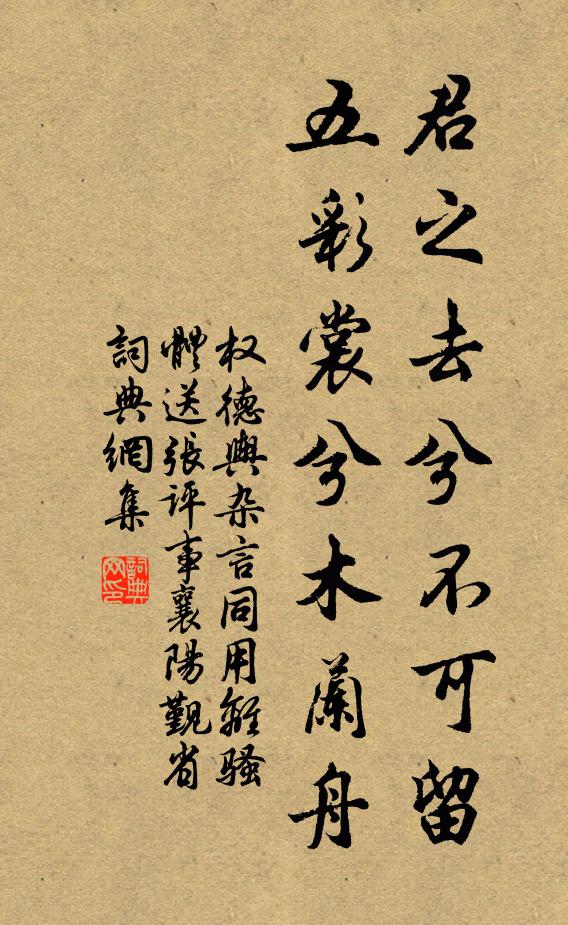 君之去兮不可留
五彩裳兮木蘭舟
权德輿杂言同用離騷
體送張评事襄陽覲省
詞典網集
詞典网印